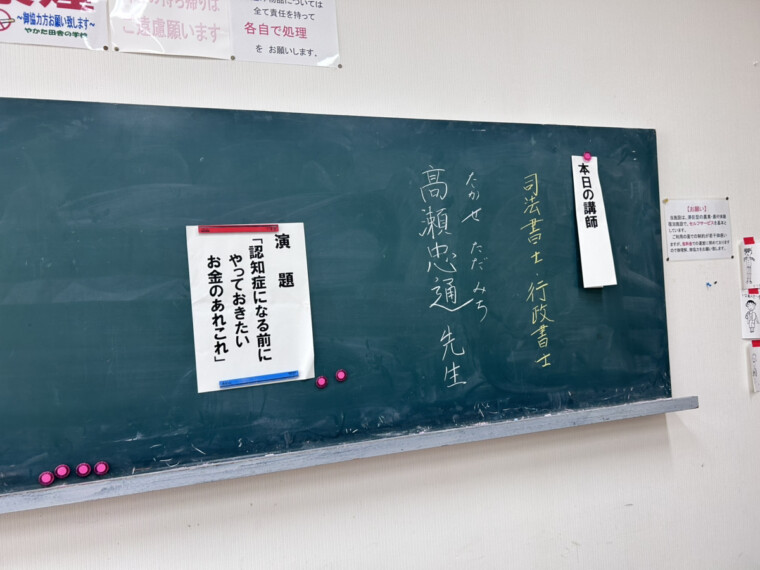 ～御協力方お願い致します～
やかた田舎の学校
ご遠慮願います
全て責任を持って
各自で処理
を お願いします。
本日の講師
司法書士・行政書士
たかせ ただみち
高瀬忠通 先生
演題
「認知症になる前に
やっておきたい
お金のあれこれ」
【お願い】